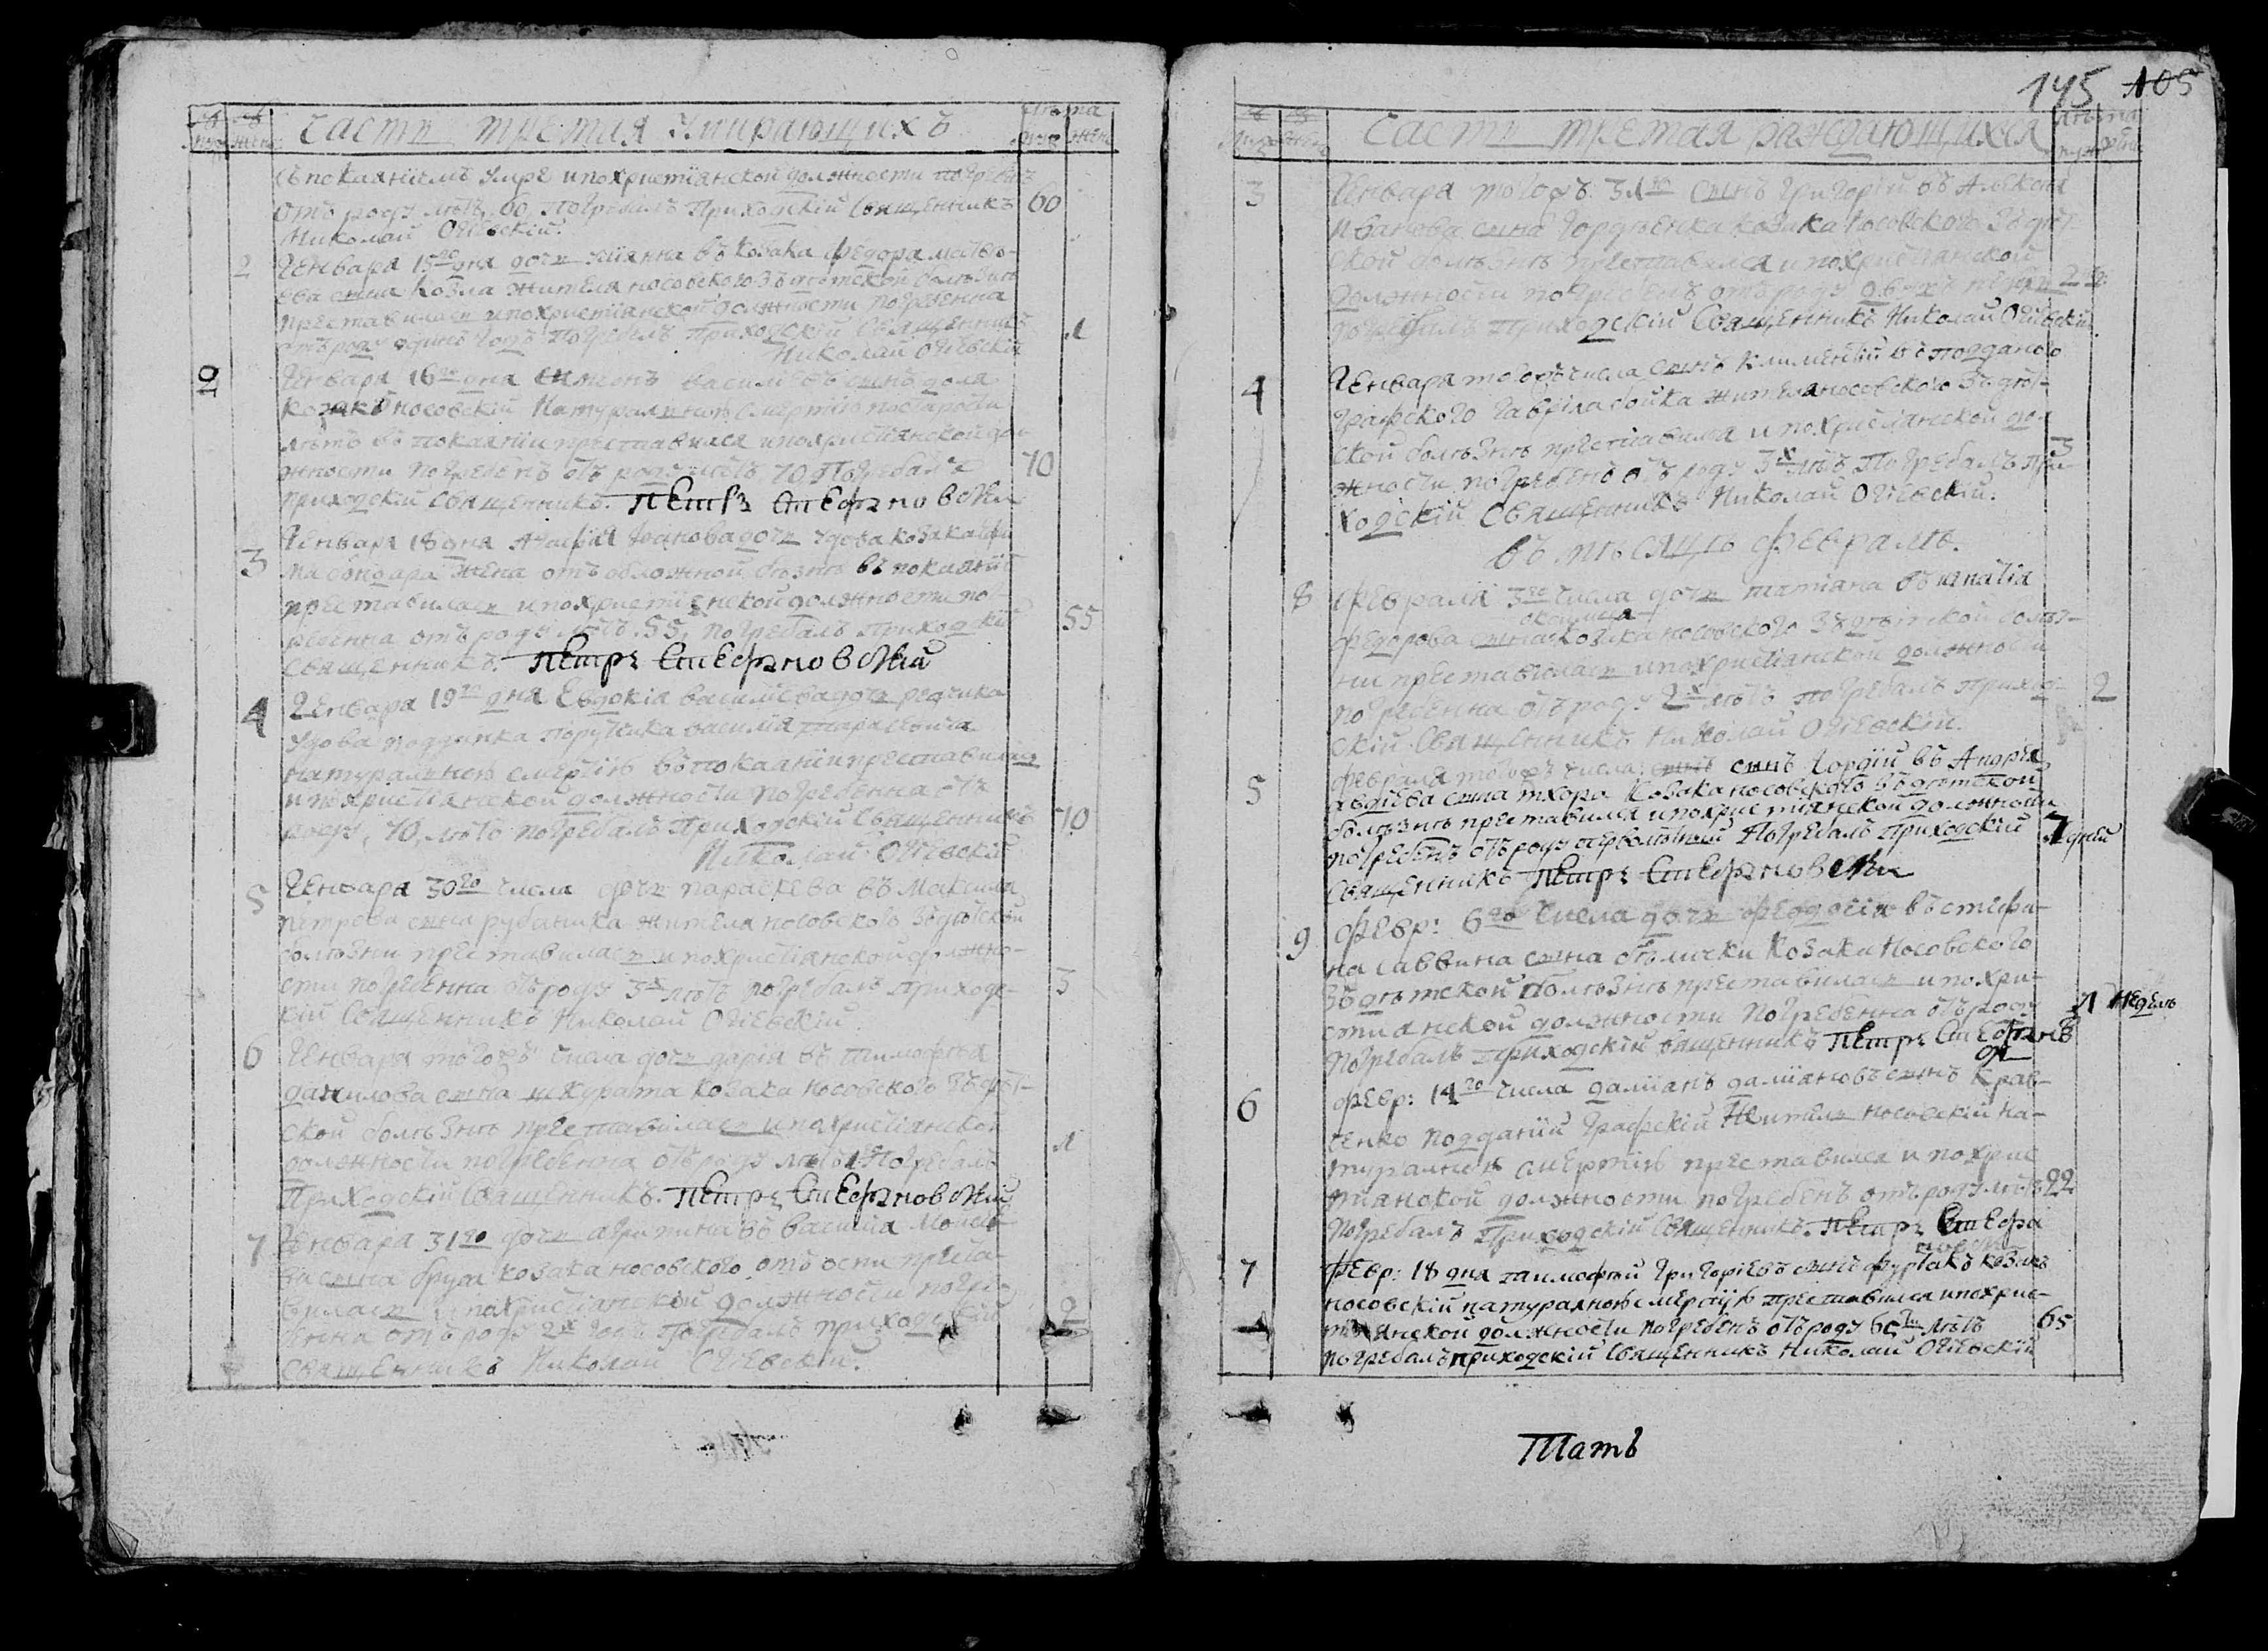 Часть третая умирающихъ
съ покаяніемъ умре и похристіянской должности погребенъ
отъ роду лѣтъ 60 Погребалъ Приходскій Священникъ 60
Николай Огіевскій.
2 Генваря 15го дня дочь въ козака Федора Матвѣ-
ева сына Козла жителя носовского зъ дѣтской болѣзни
преставилась и похристиянской должности погребенна
отъ роду единъ годъ Погребалъ Приходскій Священникъ 1
Николай Огіевскій
2 Генваря 16го дня василіевъ сынъ
козакъ носовскій натуральною смертію по старости
лѣтъ въ покаяніи преставился и похристіянской дол-
жности погребенъ отъ роду лѣтъ 70 Погребалъ 70
приходскій Священникъ. Петръ Стефановскій
3 Генваря 18 дня Агафія Іоанова дочь удова козака
бондара жена отъ обложной болѣзнѣ въ покаяніи
преставилась и похристіянской должности пог-
ребенна отъ роду лѣтъ 55, погребалъ Приходскій 55
Священникъ. Петръ Стефановскій
4 Генваря 19го дня Евдокія василіева дочь
удова подданка Поручика василія Тарасевича
натуральною смертію въ покаяніи преставилась
и похристіянской должности погребенна отъ
роду, 70, лѣтъ погребалъ Приходскій Священникъ 70
Николай Огіевскій
5 Генваря 30го числа дочь параскева въ Максима
петрова сина рубаника жителя носовского зъ дѣтской
болѣзни преставилась и похристіянской должно-
сти погребенна отъ роду 3х лѣтъ погребалъ Приходс- 3
кій Священникъ Николай Огіевскій
6 Генваря тогожъ числа дочь дарія въ тимофѣя
данилова сына шкурата козака носовского зъ дѣт-
ской болѣзнѣ преставилась и похристіянской
должности погребенна отъ роду лѣтъ 1 Погребалъ 1
Приходскій Священникъ. Петръ Стефановскій
7 Генваря 31го дочь агрипина въ василія
сына козака носовского отъ оспи преста-
вилась и похристіянской должности погре-
бенна отъ роду 2х годъ Погребалъ приходскій 2
Священникъ Николай Огіевскій.
145 105
Часть третая
3 Генваря тогожъ 31го сынъ Григорій въ Алексѣя
Иванова сына Гордѣенка козака носовского зъ дѣт-
ской болѣзнѣ преставился и похристіянской
должности погребенъ отъ роду двухъ недель 2
погребалъ Приходскій Священникъ Николай Огіевскій
4 Генваря тогожъ числа сынъ Климентій въ подданого
графского Гавріла бойка жителя носовского зъ дѣт-
ской болѣзнѣ преставился и похристіянской дол-
жности погребенъ отъ роду 3х лѣтъ Погребалъ При- 3
ходскій Священникъ Николай Огіевскій.
Въ мѣсяцѣ Февралѣ.
8 Февраля 3го числа дочь татіана въ игнатія
Федорова сына козака носовского зъ дѣтской болѣз-
ни преставилась и похристіянской должности
погребенна отъ роду 2х лѣтъ погребалъ Приход- 2
скій Священникъ Николай Огіевскій.
5 Февраля тогожъ числа сынъ Гордій въ Андрія
авдіева сына тхора козака носовского зъ дѣтской
болѣзнѣ преставился и похристиянской должности
погребенъ отъ роду Погребалъ Приходскій 7 дней
Священникъ Петръ Стефановскій
9 Февр: 6го числа дочь Феодосія въ стефа-
на саввина сына бѣлички козака носовского
зъ дѣтской болѣзнѣ преставилась и похри-
стиянской должности погребенна отъ роду 1 недель
погребалъ приходскій священникъ Петръ Стефановъ
6 Февр: 14го числа даміянъ даміяновъ сынъ Крав-
ченко подданій графскій житель носовскій на-
туралною смертію преставился и похрис
тиянской должности погребенъ отъ роду лѣтъ 22
погребалъ Приходскій Священникъ. Петръ Стефа
новскій
7 Февр: 18 дня тимофѣй григоріевъ сынъ козакъ
носовскій натуралною смертію преставился и похрис-
тиянской должности погребенъ отъ роду лѣтъ 65
погребалъ приходскій Священникъ Николай Огіевскій
Татъ